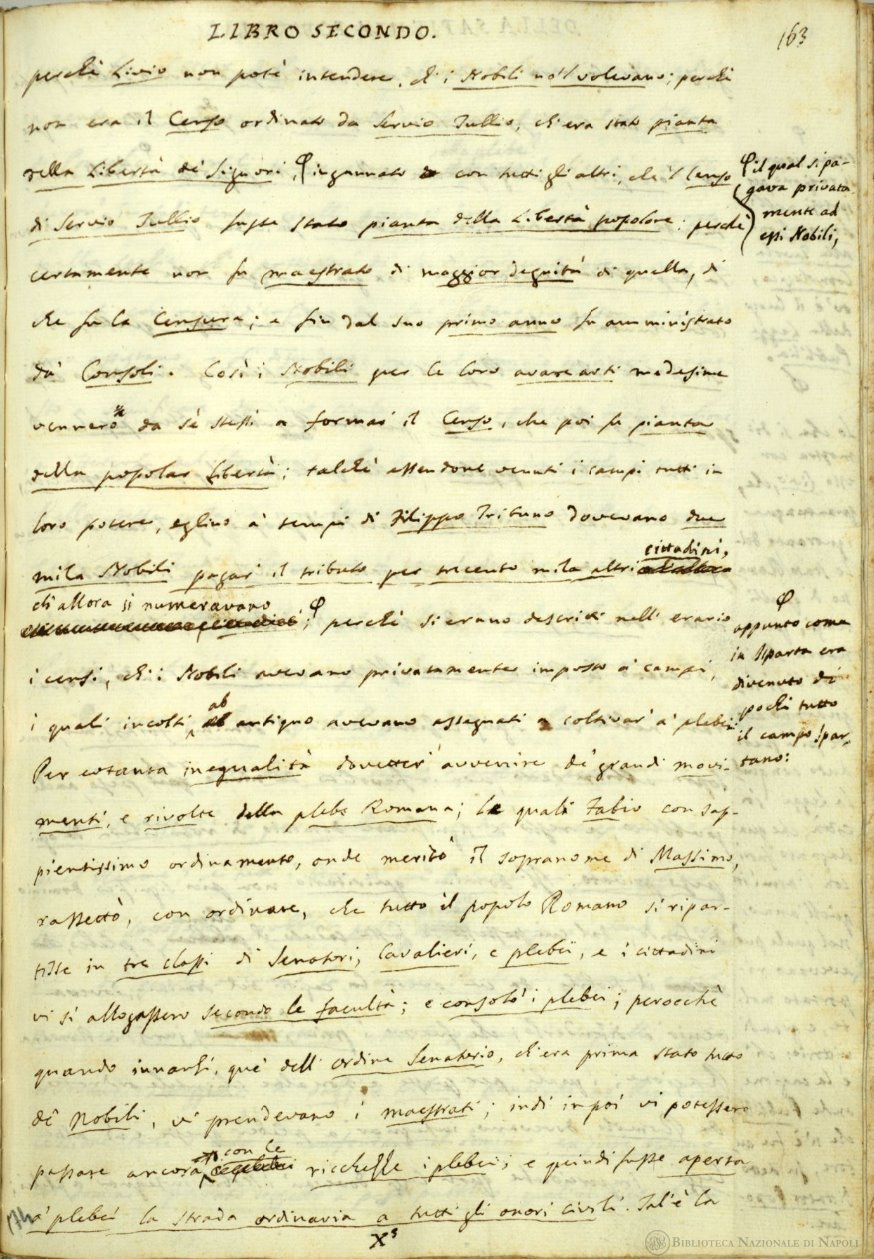 LIBRO SECONDO.
163
perchè Livio non potè intendere, ch'i Nobili no'l volevano; perchè
non era il Censo ordinato da Servio Tullio, ch'era stato pianta
della Libertà de' Signori, φ ingannato con tutti gli altri, che 'l Censo
φ il qual si pa-
gava privata
mente ad
essi Nobili,
di Servio Tullio fusse stato pianta della Libertà popolare: perchè
certamente non fu maestrato di maggior degnità di quella, di
che fu la Censura; e fin dal suo primo anno fu amministrato
da' Consoli. Così i Nobili per le loro avare arti medesime
vennero da sè stessi a formar il Censo, che poi fu pianta
della popolar Libertà; talchè essendone venuti i campi tutti in
loro potere, eglino a' tempi di Filippo Tribuno dovevano due
mila Nobili pagar il tributo per trecento mila altri cittadini,
ch'allora si numeravano; φ perchè si erano descritti nell' erario
φ
appunto come
in Sparta era
divenuto di
pochi tutto
il campo Spar-
tano:
i censi, ch'i Nobili avevano privatamente imposto a' campi,
i quali incolti ab antiquo avevano assegnati a coltivar' a' plebei.
Per cotanta inegualità dovetter' avvenire de' grandi movi-
menti, e rivolte della plebe Romana; le quali Fabio con sap-
pientissimo ordinamento, onde meritò il sopranome di Massimo,
rassettò, con ordinare, che tutto il popolo Romano si ripar-
tisse in tre classi di Senatori, Cavalieri, e plebei, e i cittadini
vi si allogassero secondo le facultà; e consolò i plebei; perocchè
quando innanzi, que' dell' ordine Senatorio, ch'era prima stato tutto
de' Nobili, vi prendevano i maestrati; indi in poi vi potessero
passare ancora con le ricchezze i plebei; e quindi fusse aperta
a' plebei la strada ordinaria a tutti gli onori civili. Tal'è la
BIBLIOTECA NAZIONALE DI NAPOLI